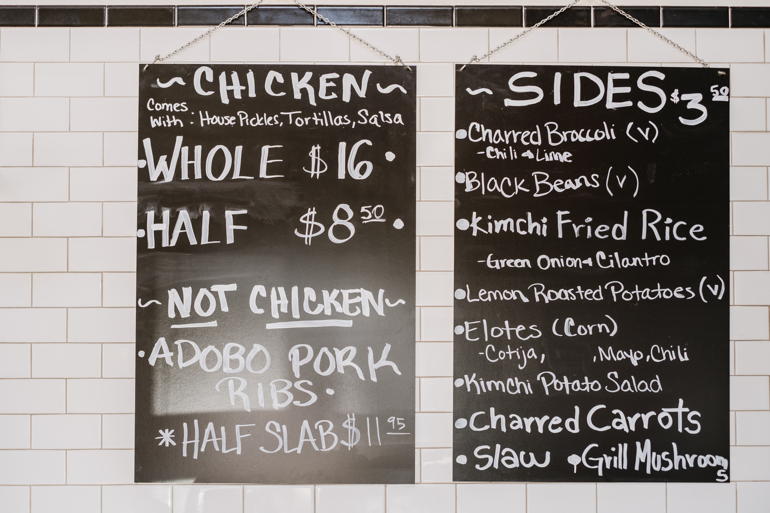 ~ CHICKEN ~
Comes
With : House Pickles, Tortillas, Salsa
• WHOLE $16 •
• HALF $8 50 •
~ NOT CHICKEN ~
• ADOBO PORK
RIBS •
* HALF SLAB $11 95
~ SIDES $3 50
• Charred Broccoli (v)
- Chili + Lime
• Black Beans (v)
• Kimchi Fried Rice
- Green Onion + Cilantro
• Lemon Roasted Potatoes (v)
• Elotes (Corn)
- Cotija, , Mayo, Chili
• Kimchi Potato Salad
• Charred Carrots
• Slaw • Grill Mushroom
S